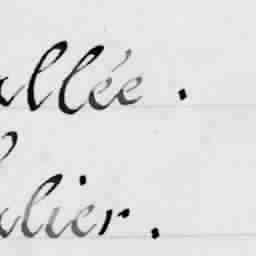 allée.
alier.